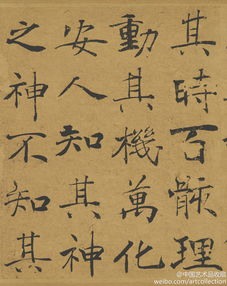 其時百骸理
動其機萬化
安人知其神
之神不知其
@中国艺术品收藏
weibo.com/artcollection